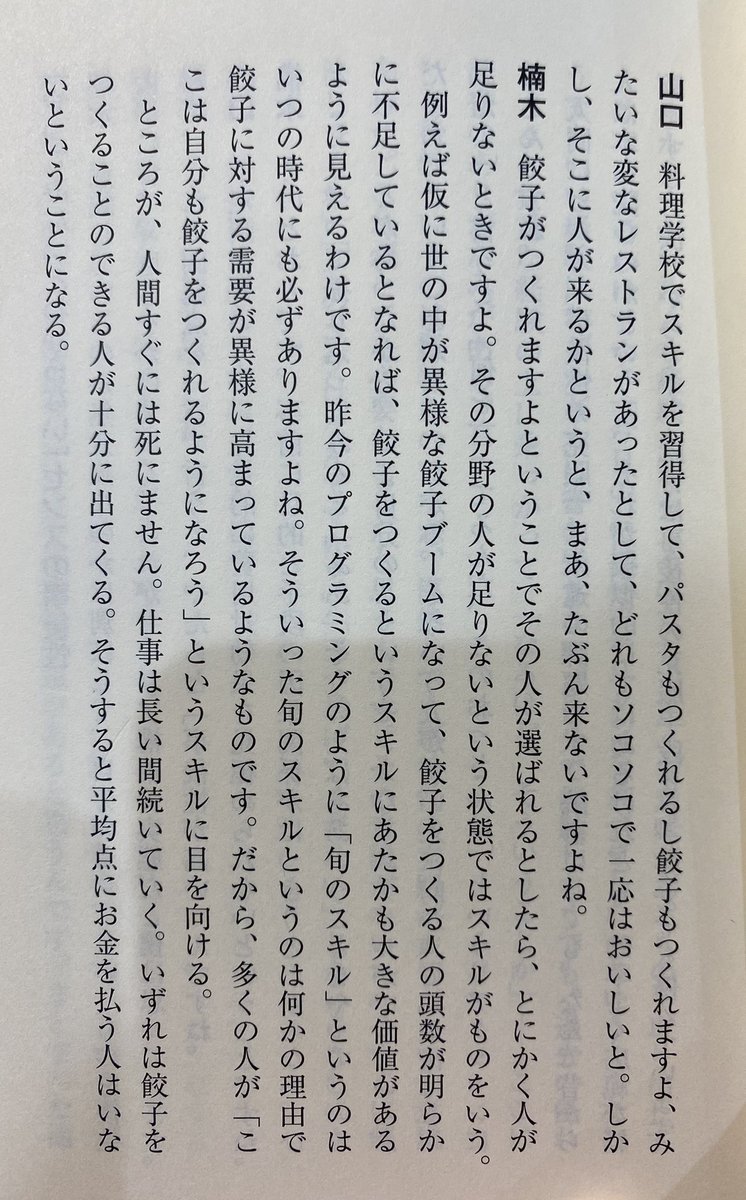 山口　料理学校でスキルを習得して、パスタもつくれるし餃子もつくれますよ、み
たいな変なレストランがあったとして、どれもソコソコで一応はおいしいと。しか
し、そこに人が来るかというと、まあ、たぶん来ないですよね。
楠木　餃子がつくれますよということでその人が選ばれるとしたら、とにかく人が
足りないときですよ。その分野の人が足りないという状態ではスキルがものをいう。
　例えば仮に世の中が異様な餃子ブームになって、餃子をつくる人の頭数が明らか
に不足しているとなれば、餃子をつくるというスキルにあたかも大きな価値がある
ように見えるわけです。昨今のプログラミングのように「旬のスキル」というのは
いつの時代にも必ずありますよね。そういった旬のスキルというのは何かの理由で
餃子に対する需要が異様に高まっているようなものです。だから、多くの人が「こ
こは自分も餃子をつくれるようになろう」というスキルに目を向ける。
　ところが、人間すぐには死にません。仕事は長い間続いていく。いずれは餃子を
つくることのできる人が十分に出てくる。そうすると平均点にお金を払う人はいな
いということになる。